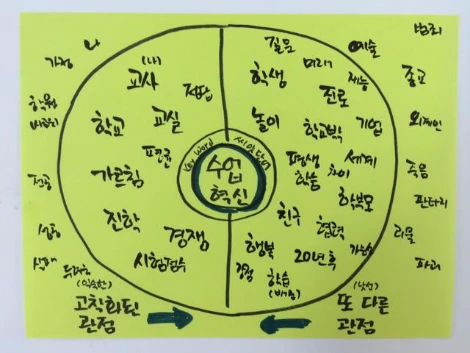 질문
예술
범죄
가정
나
(나)
교사
미래
학생
재능
종교
진로
학원
교실
놀이
기업
외계인
학교
학교밖
Key word
씨앗단어
편견
평생
학습
세계
차이
죽음
수업
혁신
가르침
학부모
판타지
전공
친구
협력
괴물
진학
경쟁
가능성
성공
행복
20년후
파괴
실패
시험점수
경험
학습
(배움)
(익숙한)
고착화된
관점
(낯선)
또 다른
관점